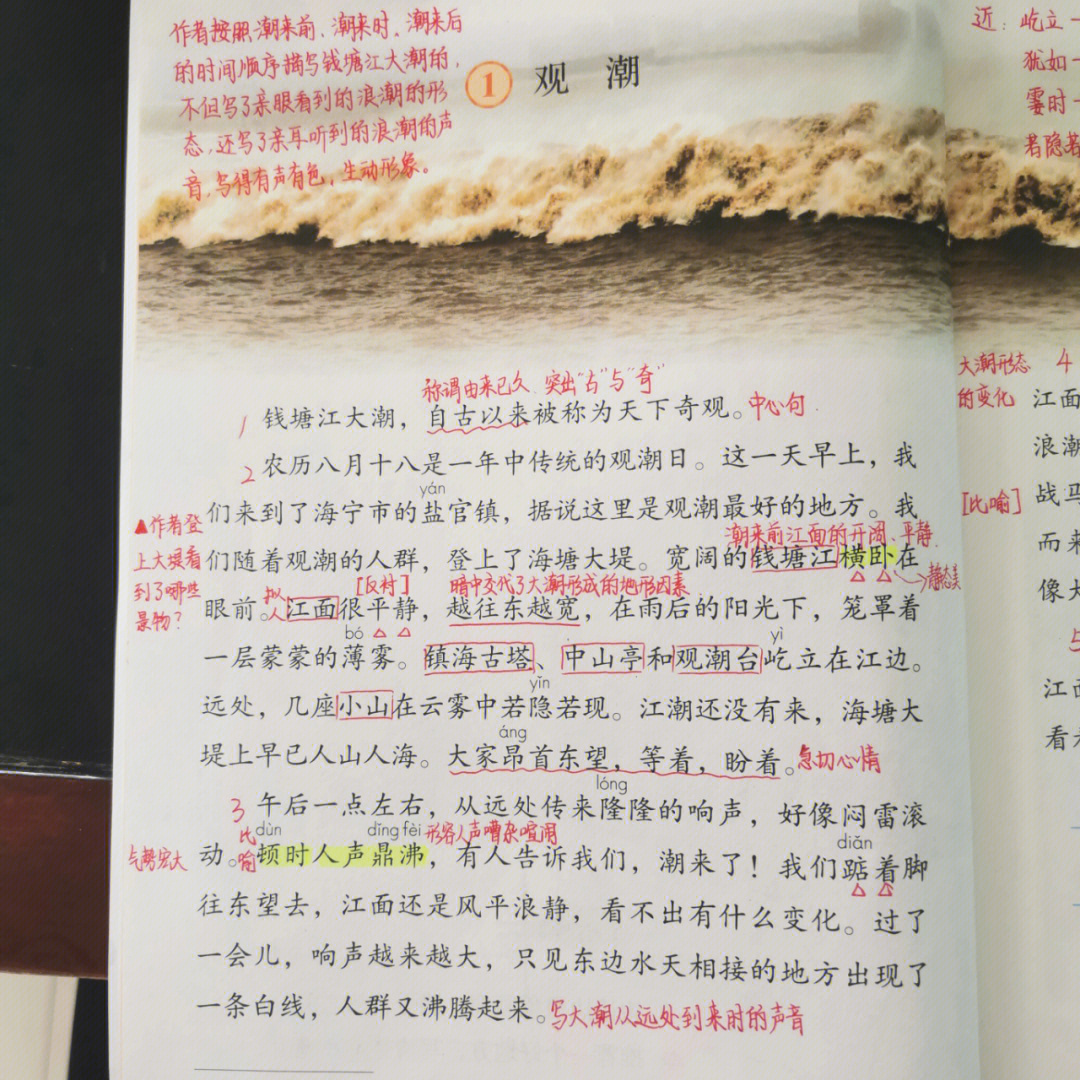 作者按照潮来前、潮来时、潮来后
的时间顺序描写钱塘江大潮的,
不但写了亲眼看到的浪潮的形
态,还写了亲耳听到的浪潮的声
音,写得有声有色,生动形象。
1 观 潮
近：屹立一
犹如一
霎时一
若隐若
称谓由来已久、突出“古”与“奇”
1 钱塘江大潮，自古以来被称为天下奇观。中心句
2 农历八月十八是一年中传统的观潮日。这一天早上，我
yán
们来到了海宁市的盐官镇，据说这里是观潮最好的地方。我
▲作者登
上大堤看
到了哪些
景物?
潮来前江面的开阔、平静
们随着观潮的人群，登上了海塘大堤。宽阔的钱塘江横卧在
静态美
[反衬] 暗中交代了大潮形成的地形因素
拟人
眼前。江面很平静，越往东越宽，在雨后的阳光下，笼罩着
bó yì
一层蒙蒙的薄雾。镇海古塔、中山亭和观潮台屹立在江边。
yǐn
远处，几座小山在云雾中若隐若现。江潮还没有来，海塘大
áng
堤上早已人山人海。大家昂首东望，等着，盼着。急切心情
lóng
3 午后一点左右，从远处传来隆隆的响声，好像闷雷滚
比喻
气势宏大
dùn dǐng fèi 形容人声嘈杂喧闹 diǎn
动。顿时人声鼎沸，有人告诉我们，潮来了！我们踮着脚
往东望去，江面还是风平浪静，看不出有什么变化。过了
一会儿，响声越来越大，只见东边水天相接的地方出现了
一条白线，人群又沸腾起来。写大潮从远处到来时的声音
大潮形态
的变化
4
江面
浪潮
[比喻]
战马
而来
像大
江面
看